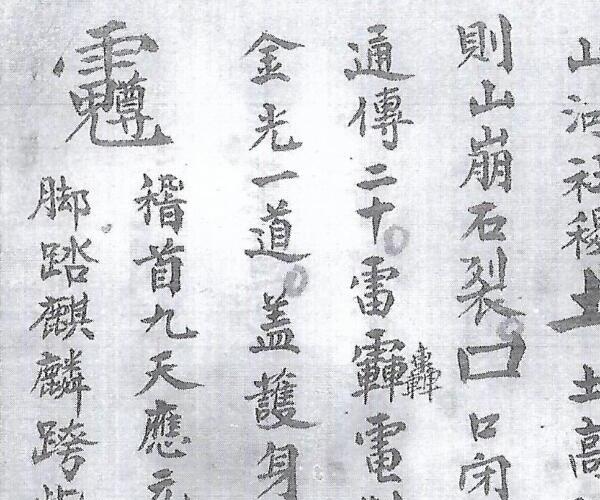 山河社稷土土高
則山崩石裂口口閉
通傳二十雷轟電
金光一道蓋護身
稽首九天應元
脚踏麒麟跨